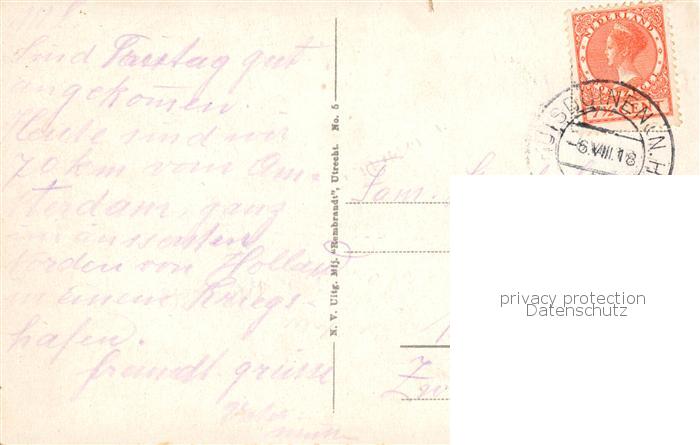 Sind Freitag gut
angekommen.
Heute sind wir
70 km vom Am-
sterdam, ganz
im äussersten
Norden von Holland
in einem Kriegs-
hafen.
freundl. grüsse
N. V. Uitg. Mij. "Rembrandt", Utrecht. No. 5
NEDERLAND
HUISDUINEN (N.H.
-6.VIII.18
Fam.
privacy protection
Datenschutz